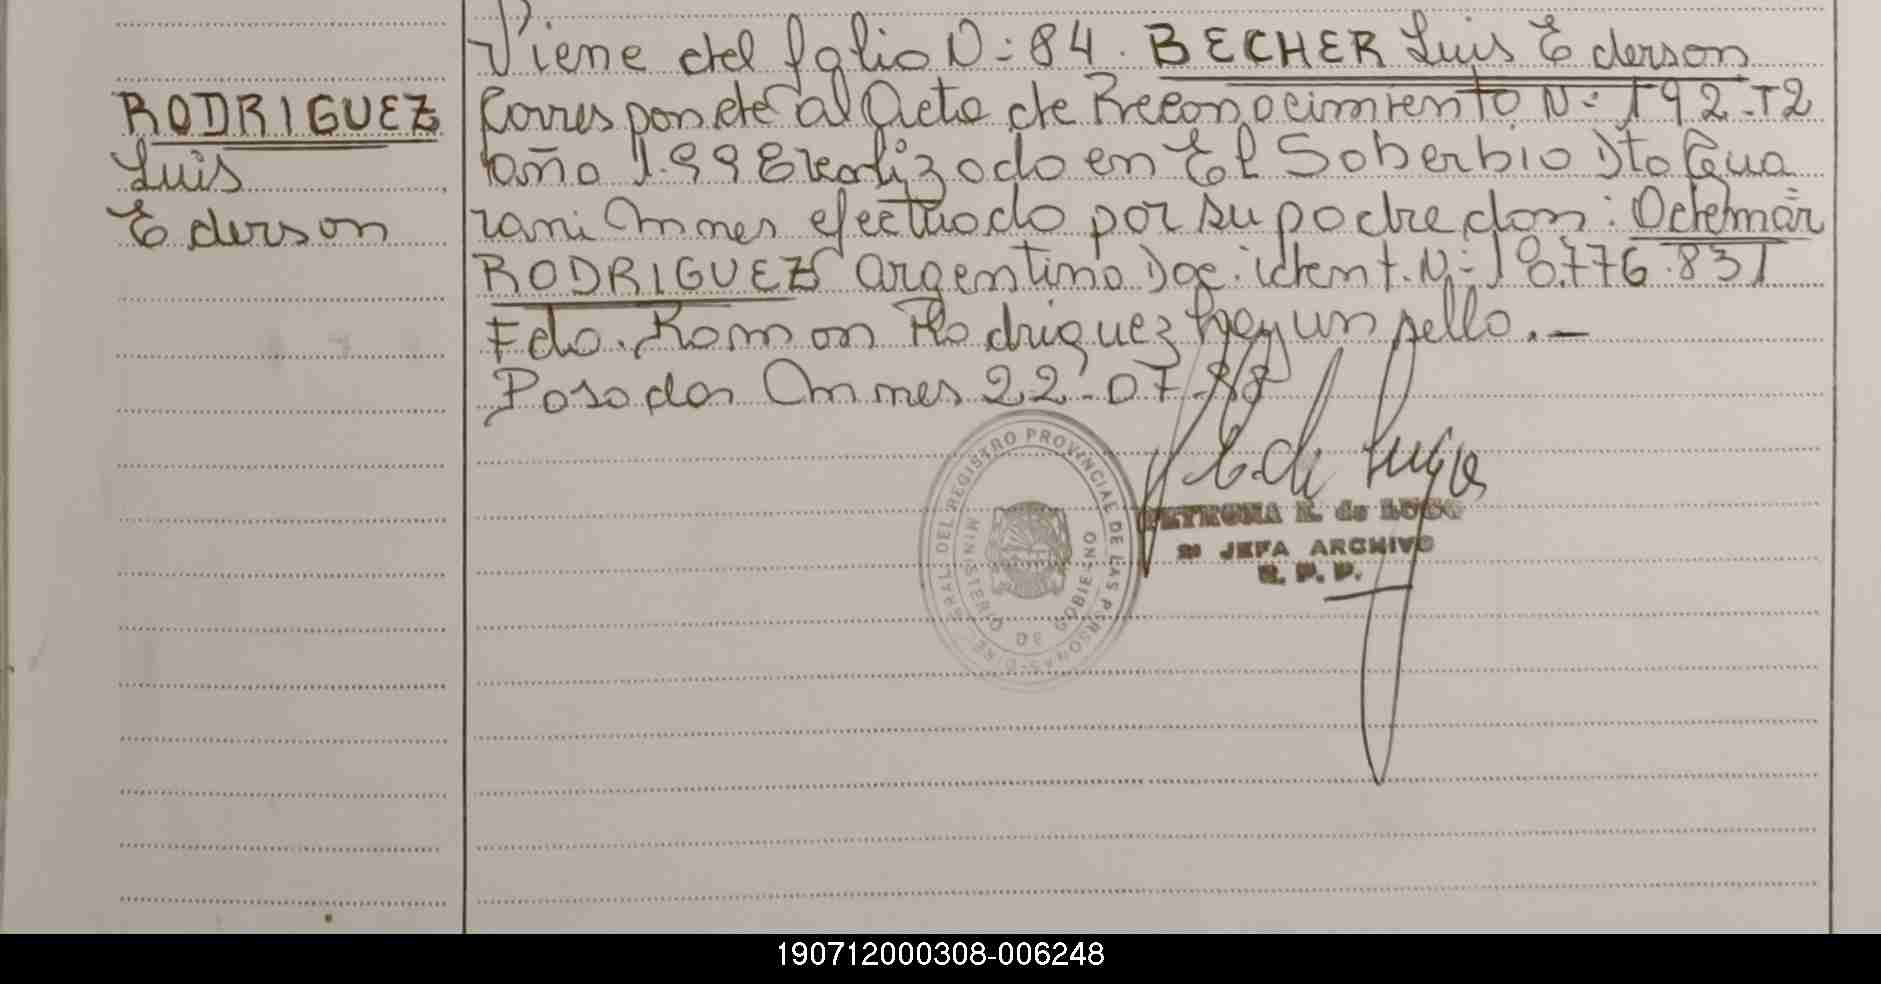 RODRIGUEZ
Luis
Ederson
Viene del folio N: 84. BECHER Luis Ederson
Corresponde al Acta de Reconocimiento N: 192-T2
año 1.998 realizado en El Soberbio Dto Gua
rani Mnes efectuado por su padre don: Odemar
RODRIGUEZ argentino Doc. ident. N: 18.776.831
Fdo. Ramon Rodriguez hay un sello.-
Posadas Mnes 22-07-98
REGISTRO PROVINCIAL DE LAS PERSONAS
MINISTERIO DE GOBIERNO
PETRONA R. de LUGO
JEFA ARCHIVO
R. P. P.
190712000308-006248